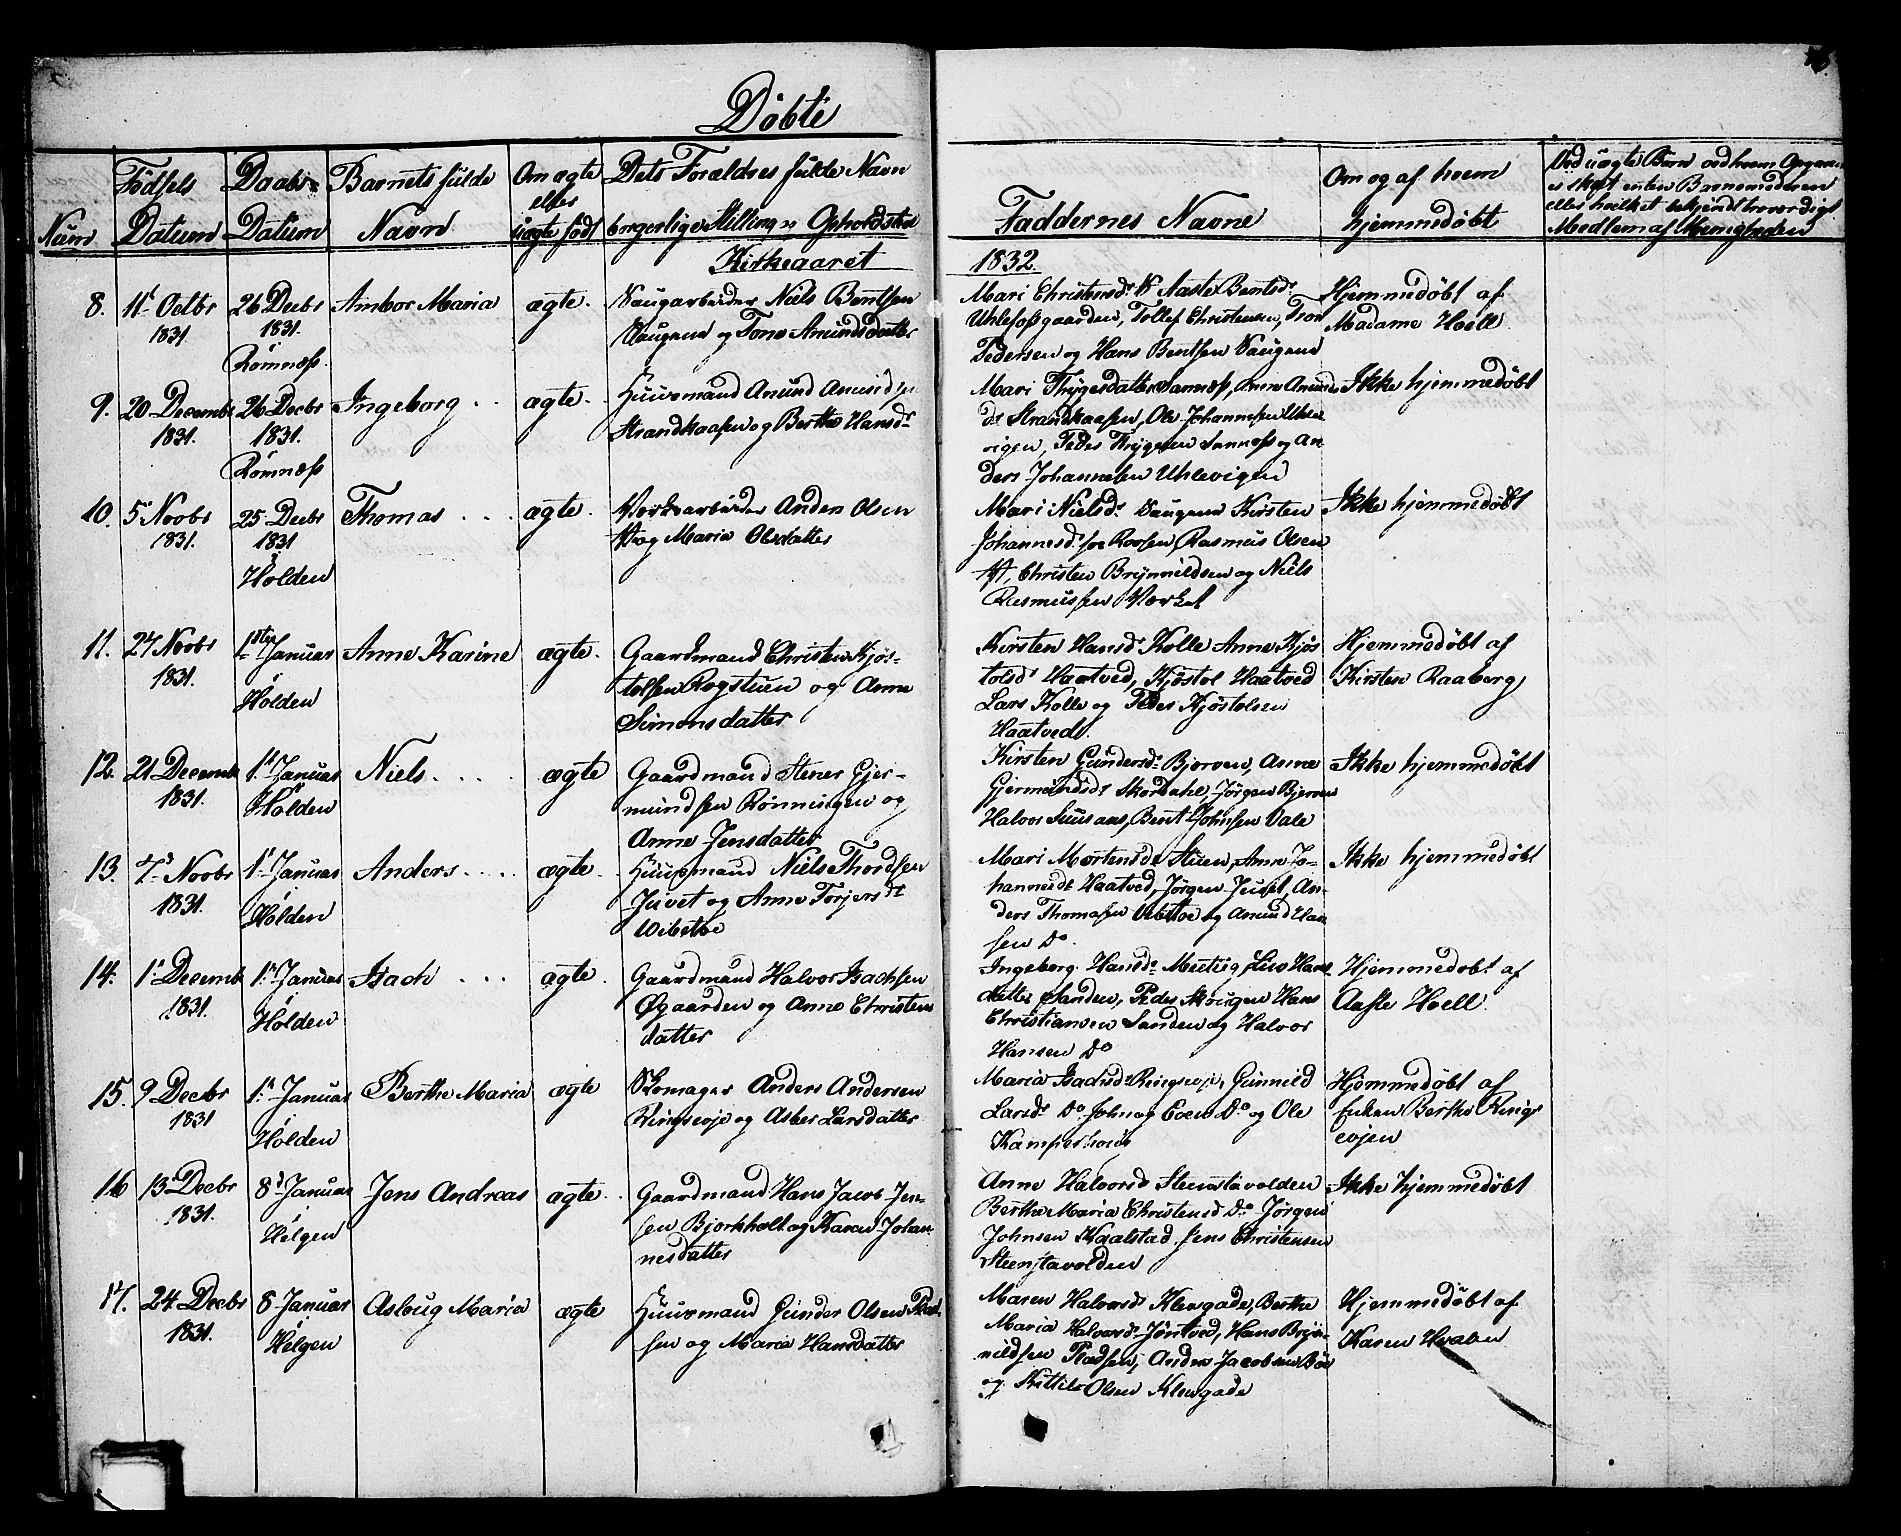 Döbte
Num
Födsels
Datum
Daabs
Datum
Barnets fulde
Navn
Om ægte
eller
uægte född
Dets Forældres fulde Navn
borgerlige Stilling og Opholdsted
Faddernes Navne
Om og af hvem
hjemmedöbt
Ved uægte Börn
er skeet enten Barnemoderen
eller hvilket bekjendt troværdigt
Medlem af Menigheden
Kirkeaaret
1832
8.
11 Octbr
1831
26 Decbr
1831.
Romnæs
Ambor Maria
ægte.
Niels Bentsen
og Tone Amundsdatter
Mari Christensdr Aaste Bentsdr
Uhlefosgaarden, Tollef Christensen, Tron
Pedersen og Hans Bentsen Saugene
Hjemmedöbt af
Madame Hoell
9.
20 Decembr
1831.
26 Decbr
1831.
Romnæs
Ingeborg
ægte.
Huusmand Amund Amundsen
Strandkaasen og Berthe Hansdr
Mari Thygesdatter Sannæs, Anne Amunds
dr Strandkaasen, Ole Johannesen Uhle
vigen, Peder Thygesen Sannæs og An
ders Johannesen Uhlevigen
Ikke hjemmedöbt
10.
5 Novbr
1831.
25 Decbr
1831
i
Holden
Thomas
ægte.
Værksarbeider Anders Olsen
og Maria Olsdatter
Mari Nielsdr Saugene Kirsten
Johannesdr Rasmus Olsen
Christen Brynnildsen og Niels
Rasmussen Værket
Ikke hjemmedöbt
11.
27 Novbr
1831.
1ste Januar
i
Holden
Anne Karine
ægte.
Gaardmand Christen Kjös-
tolsen Rogstuen og Anne
Simonsdatter
Kirsten Hansdr Kolle Anne Kjös
tolsdr Haatved, Kjöstol Haatved
Lars Kolle og Peder Kjöstolsen
Haatvedt.
Hjemmedöbt af
Kirsten Raaberg
12.
21 Decemb
1831.
1st Januar
i
Holden
Niels
ægte
Gaardmand Stener Gjer-
mundsen Rönningen og
Anne Jensdatter
Kirsten Gundersdr Bjerven, Anne
Gjermundsdr Skordahl, Jörgen Bjerven
Halvor Suusaas, Bent Johnsen Vale
Ikke hjemmedöbt
13.
7 Novbr
1831.
1 Januar
i
Holden
Anders
ægte.
Huusmand Niels Thordsen
Juvet og Anne Torjersdt
Vibetoe
Mari Mortensdr Stuen, Anne Jo-
hannesdt Haatved, Jörgen Juvet, An-
ders Thomasen Vibetoe og Amund Han
sen Do.
Ikke hjemmedöbt
14.
1 Decemb
1831.
1 Januar
i
Holden
Isach
ægte.
Gaardmand Halvor Isachsen
Øgaarden og Anne Christens
datter
Ingeborg Hansdr Liv Hans
datter Sanden, Peder Skougen Hans
Christiansen Sanden og Halvor
Hansen Do
Hjemmedöbt af
Aaste Hoell.
15.
9 Decbr
1831
1 Januar
i
Holden
Berthe Maria
ægte
Skomager Anders Andersen
Ringsevje og Asber Larsdatter
Maria Isachsdr Ringsevje, Gunnild
Larsdr Do. John og Even Do og Ole
Hjemmedöbt af
Enken Berthe Rings
evjen
16
13 Decbr
1831.
8d Januar
i
Helgen
Jens Andreas
ægte.
Gaardmand Hans Jacob Jen-
sen Bjorkholt og Karen Johan
nesdatter
Anne Halvorsd Steenstavolden
Berthe Maria Christensd Do Jörgen
Johnsen Kaalstad. Jens Christensen
Steenstavolden
Ikke hjemmedöbt
17.
24 Decbr
1831.
8 Januar
i
Helgen
Aslaug Maria
ægte
Huusmand Gunder Olsen Plad
sen og Maria Hansdatter
Maren Halvorsdr Klevgade, Berthe
Maria Halvorsdr Jöntved, Hans Bryn-
nildsen Pladsen, Anders Jacobsen
og Kittil Olsen Klevgade
Hjemmedöbt af
Karen Hvalen